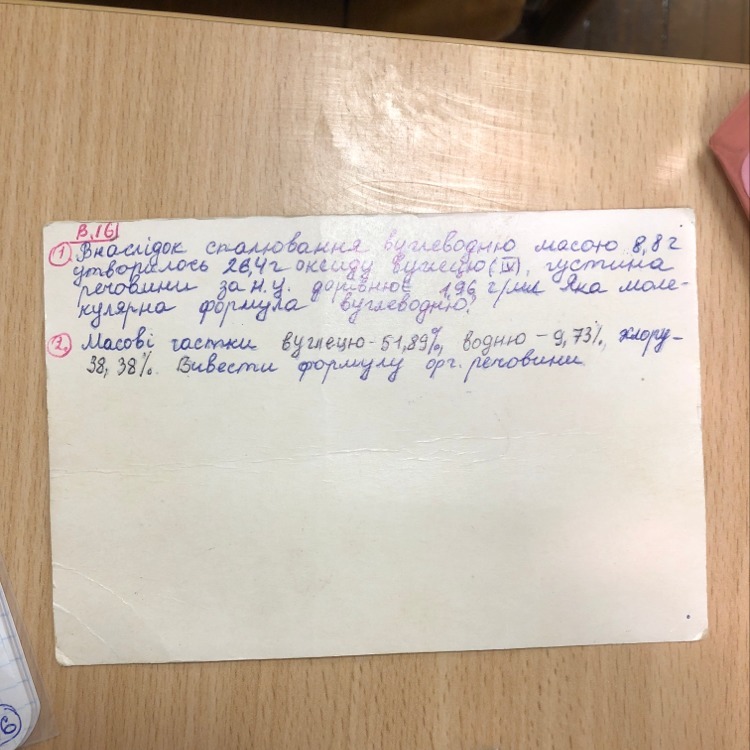 В,16
① Внаслідок спалювання вуглеводню масою 8,8г
утворилось 26,4г оксиду вуглецю (IV), густина
речовини за н.у. дорівнює 1,96 г/мл Яка моле-
кулярна формула вуглеводню?
②. Масові частки вуглецю - 51,89%, водню - 9,73%, хлору -
38,38%. Вивести формулу орг. речовини.
6